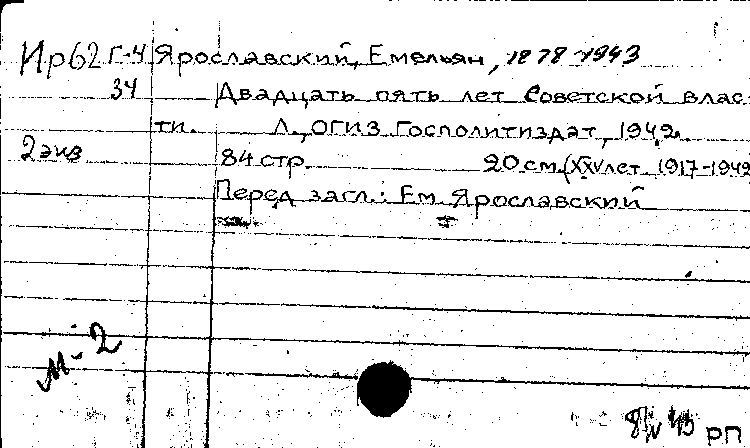 Ир62 Г-4 Ярославский, Емельян, 1878-1943
34 Двадцать пять лет Советской влас-
ти. Л., ОГИЗ Госполитиздат, 1942.
2 экз 84 стр. 20 см. (XXV лет 1917-1942
Перед загл.: Ем Ярославский
М-2
8/IV 43 РП